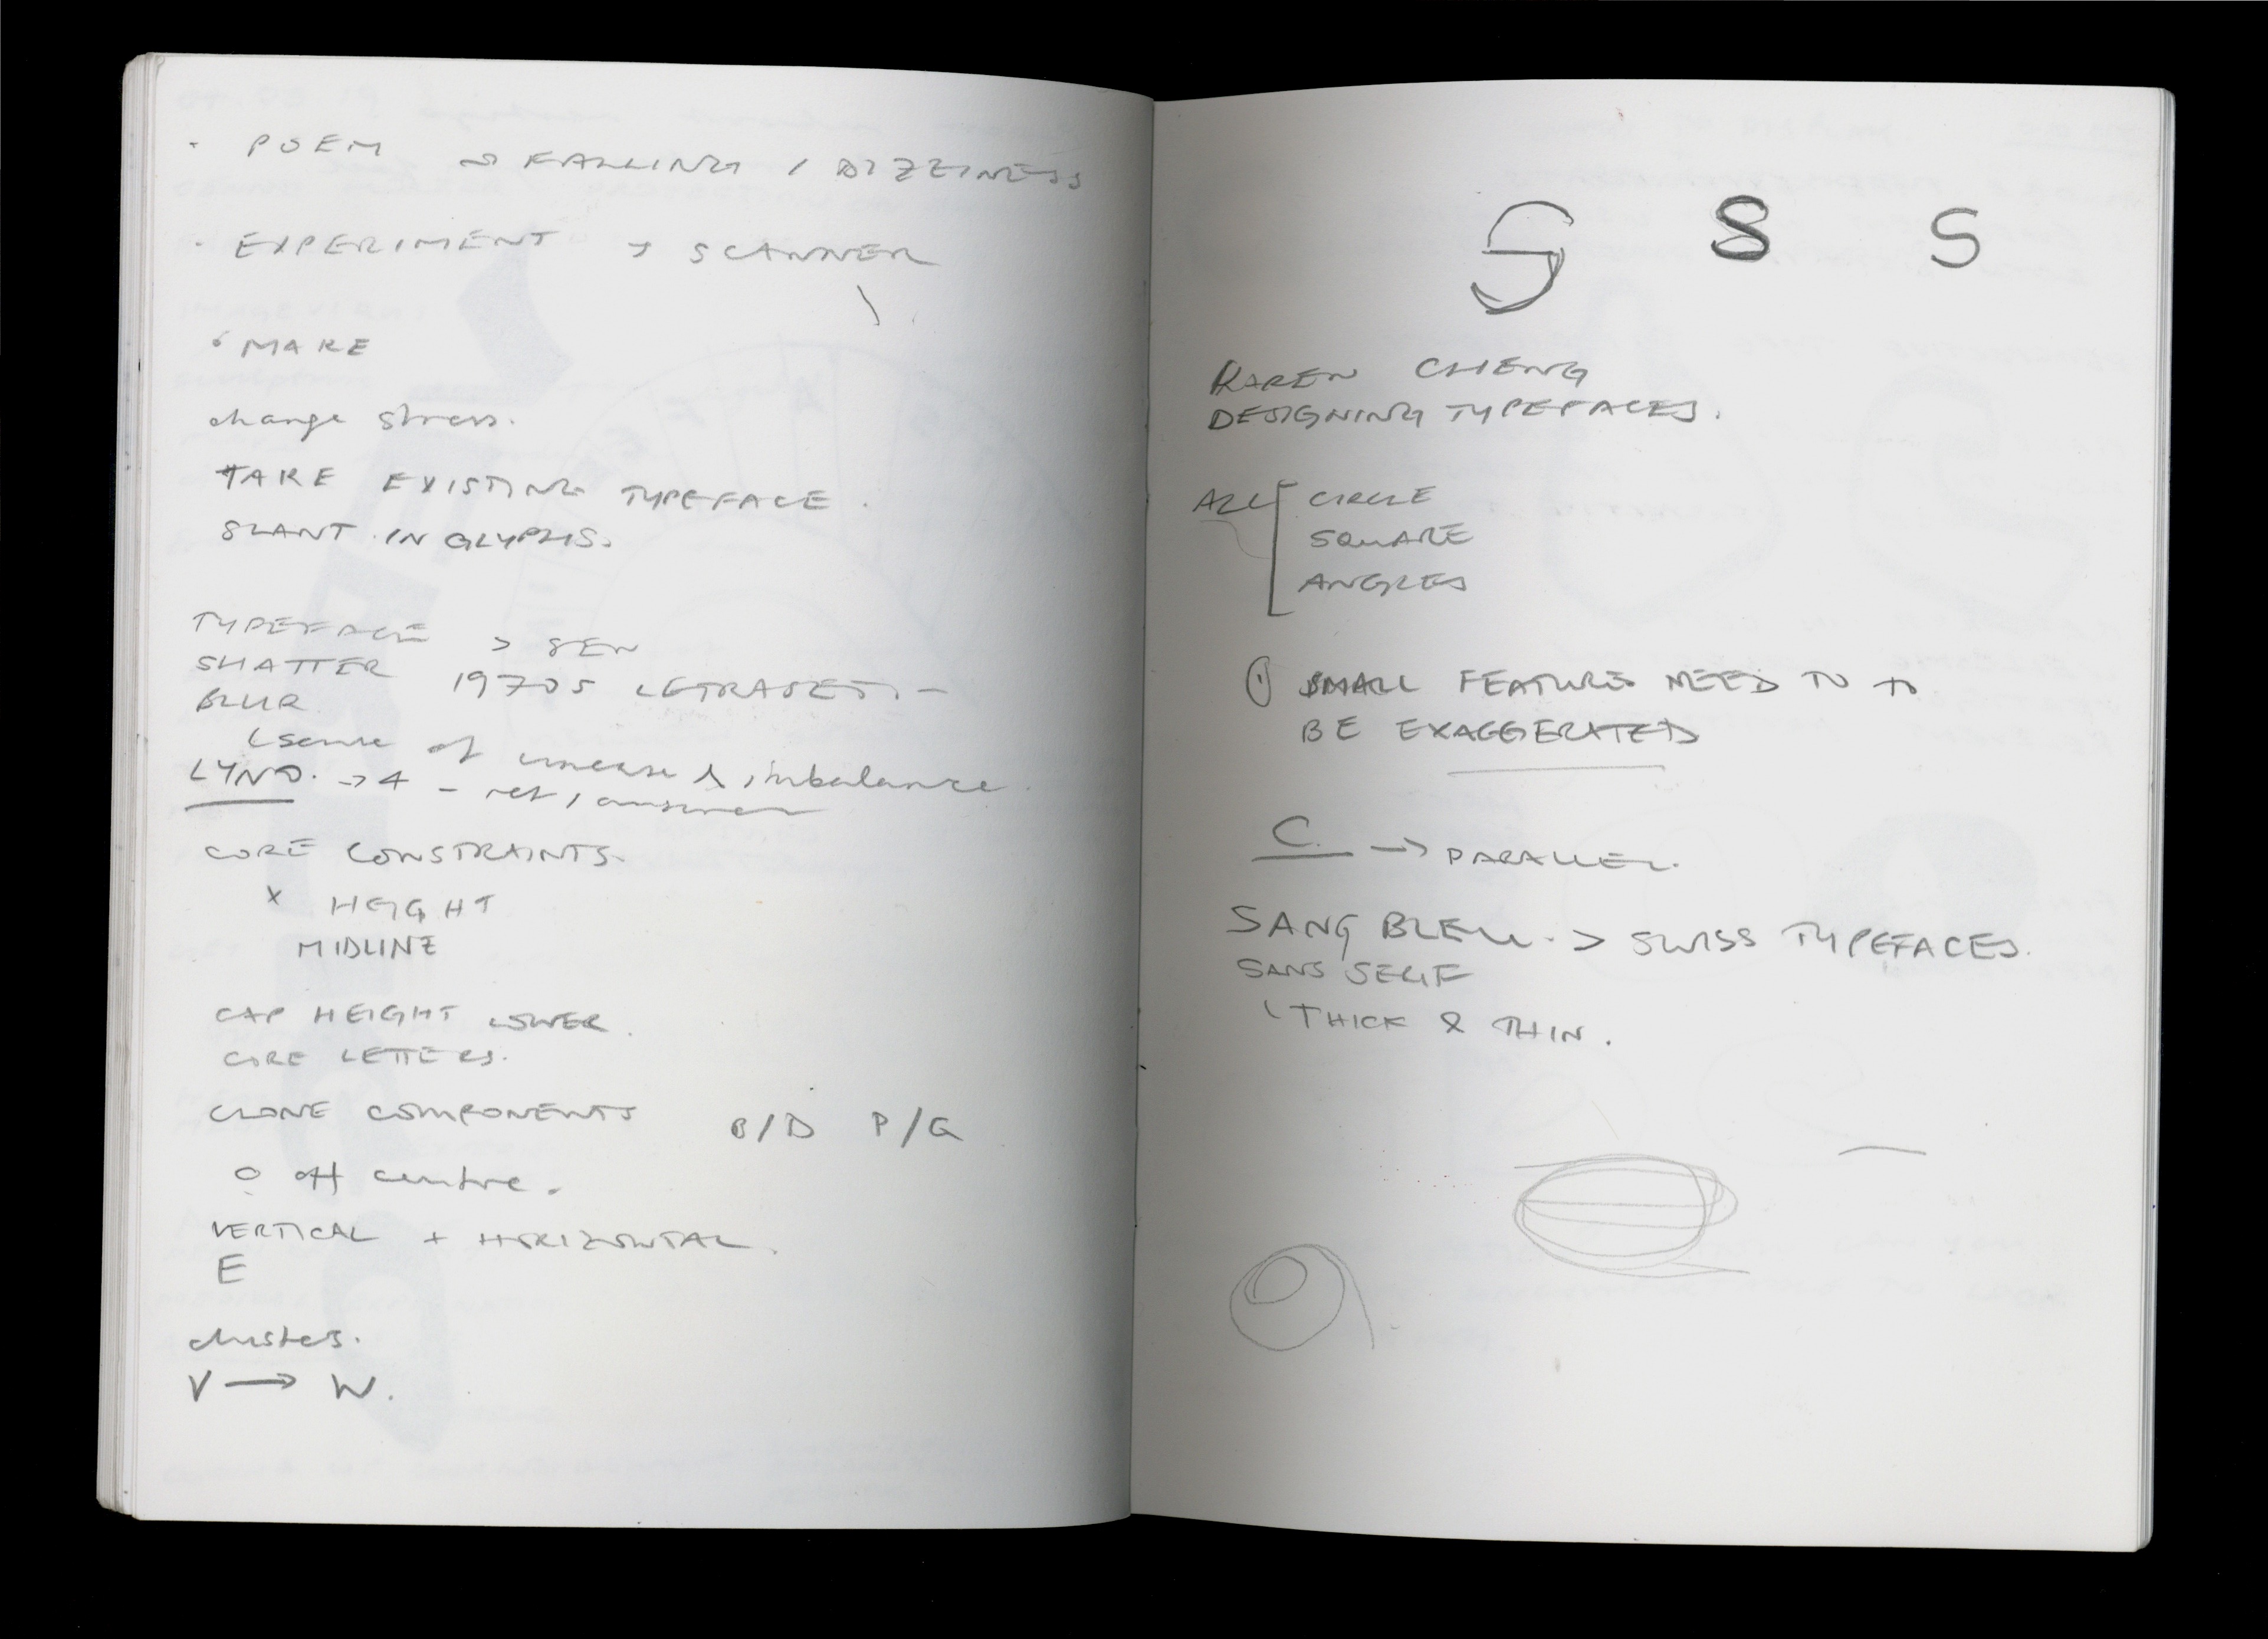 · POEM → FALLING / DIZZINESS
· EXPERIMENT → SCANNER
· MAKE
change stress.
TAKE EXISTING TYPEFACE.
SLANT IN GLYPHS.
TYPEFACE > SEN
SHATTER 1970S LETRASET -
BLUR
sense of unease & imbalance
LYNO. → 4 - ref,
CORE CONSTRAINTS.
X HEIGHT
MIDLINE
CAP HEIGHT LOWER.
CORE LETTERS.
CLONE COMPONENTS B/D P/G
O off centre.
VERTICAL + HORIZONTAL.
E
clusters.
V → W.
S S S
KAREN CHENG
DESIGNING TYPEFACES.
ALL [ CIRCLE
SQUARE
ANGLES
① SMALL FEATURES NEED TO to
BE EXAGGERATED
C. → PARALLEL.
SANG BLEU. > SWISS TYPEFACES.
SANS SERIF
THICK & THIN.